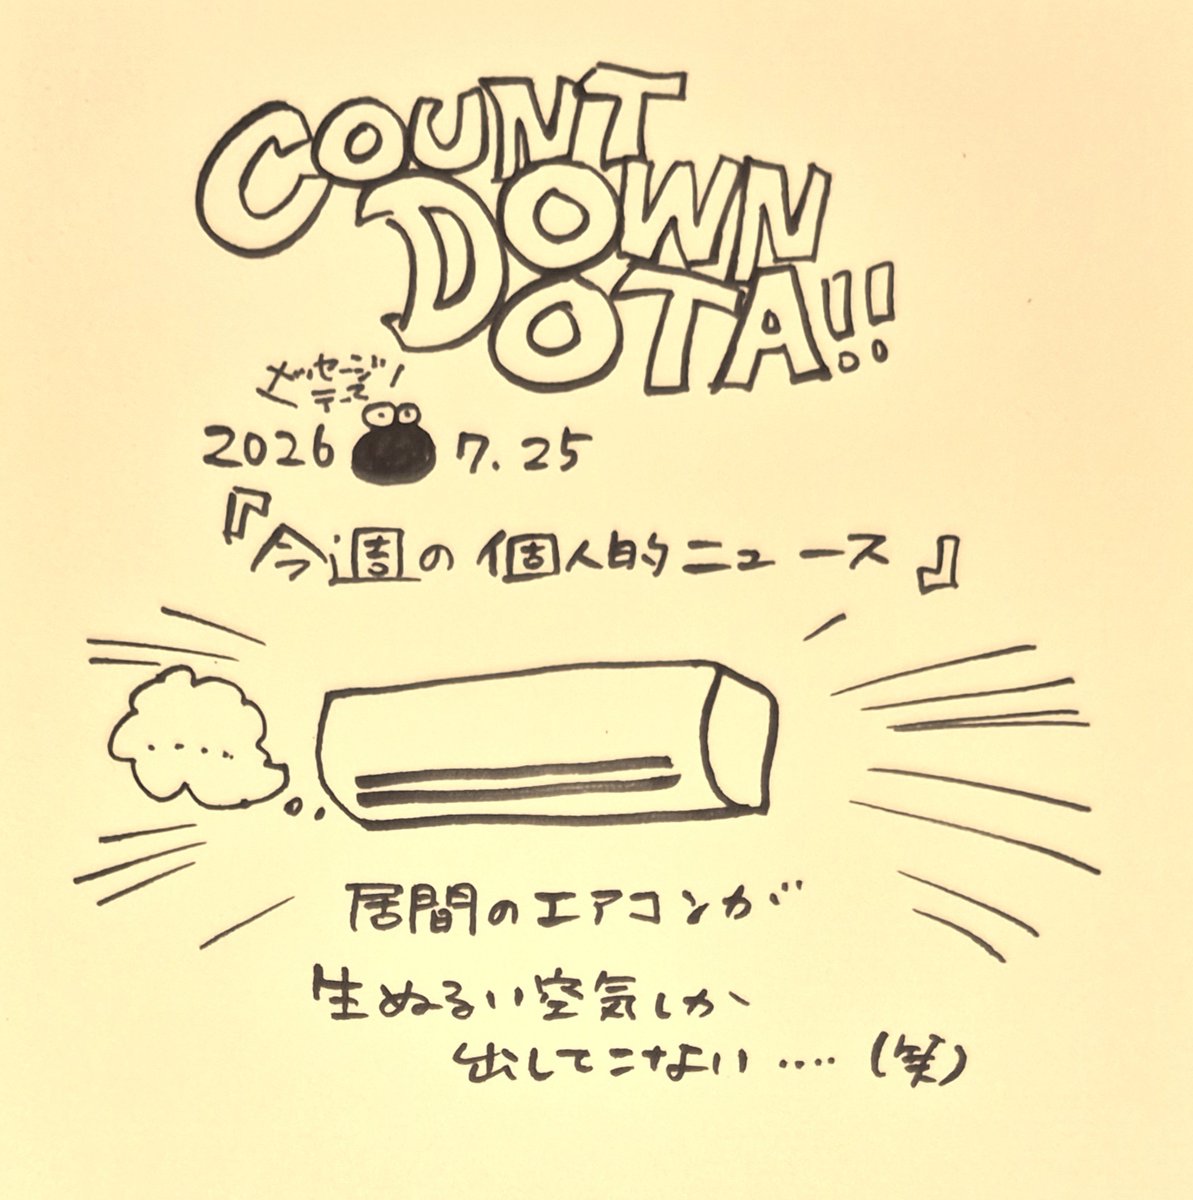 COUNT
DOWN
OTA!!
メッセージ
テーマ
2026 7.25
『今週の個人的ニュース』
.....
居間のエアコンが
生ぬるい空気しか
出してこない....(笑)